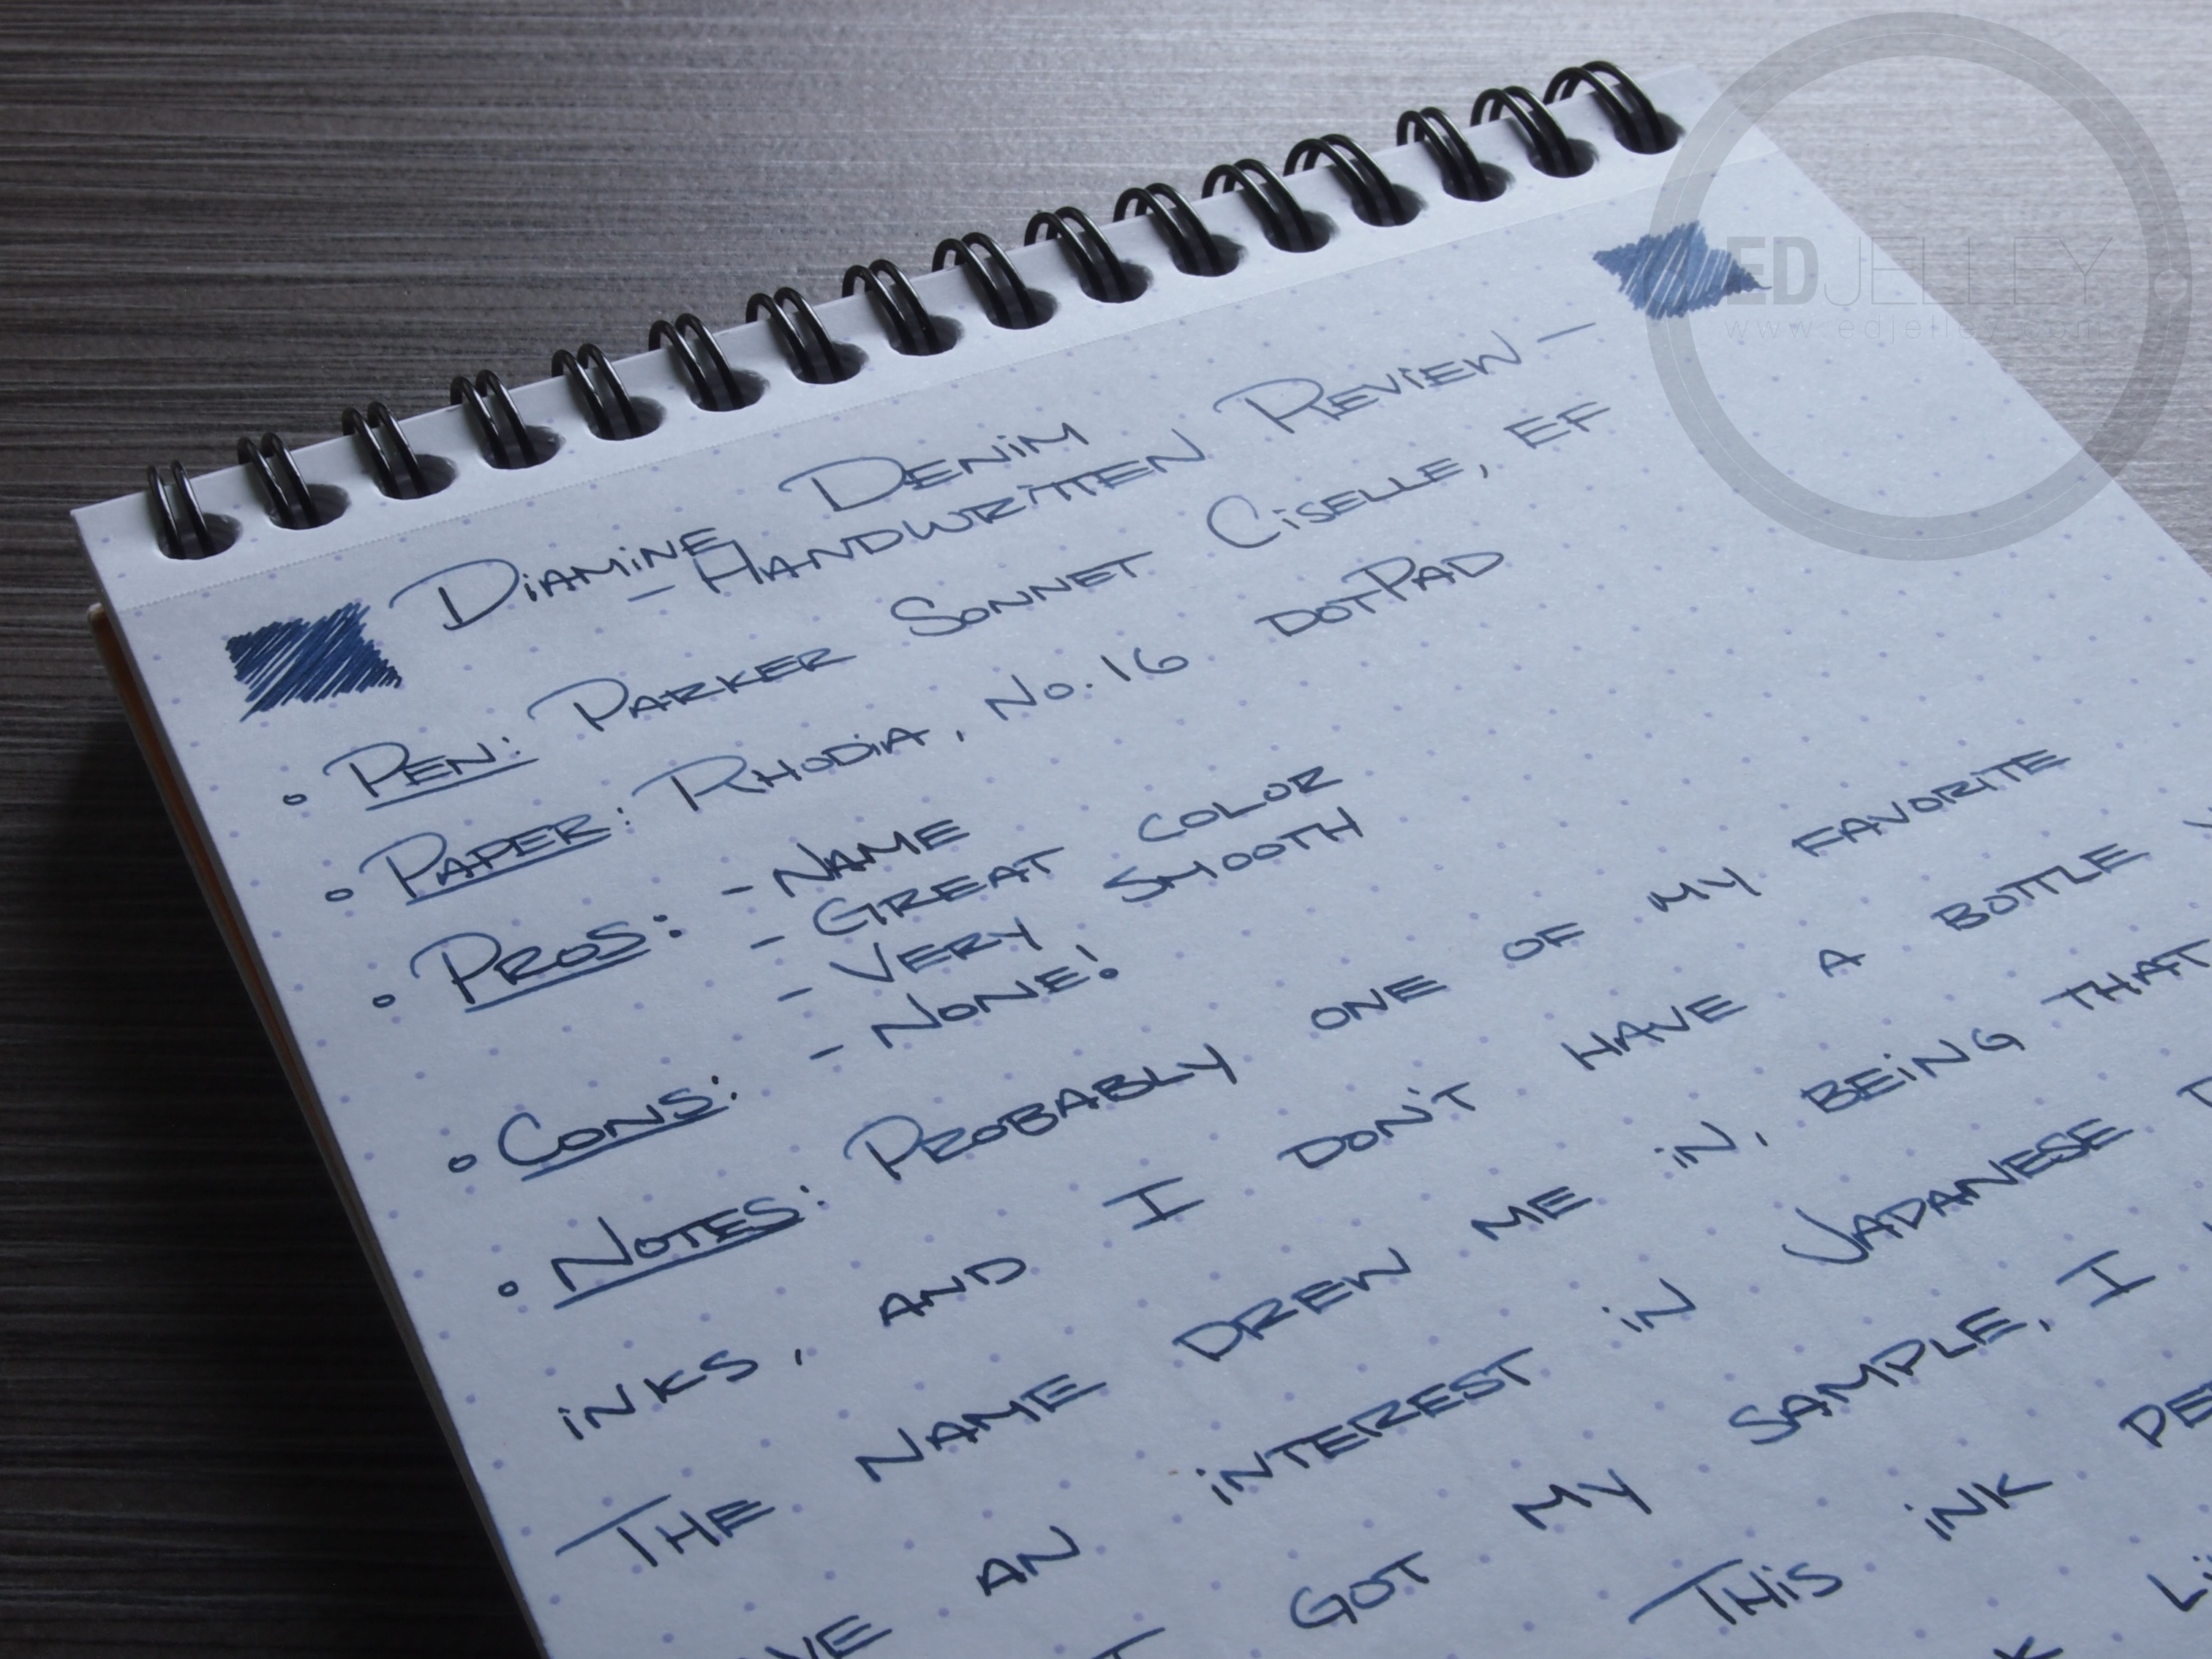 Diamine Denim
- Handwritten Review -
• Pen: Parker Sonnet Ciselle, EF
• Paper: Rhodia, No. 16 dotPad
• Pros: - Name
- Great color
- Very smooth
• Cons: - None!
• Notes: Probably one of my favorite
inks, and I don't have a bottle
The name drew me in, being that
an interest in Japanese
got my sample, I
This ink
EDJELLEY
www.edjelley.com